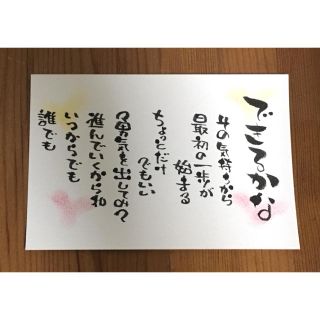 できるかな
その気持ちから
最初の一歩が
始まる
ちょっとだけ
でもいい
勇気を出してみて
進んでいくからね
いつからでも
誰でも